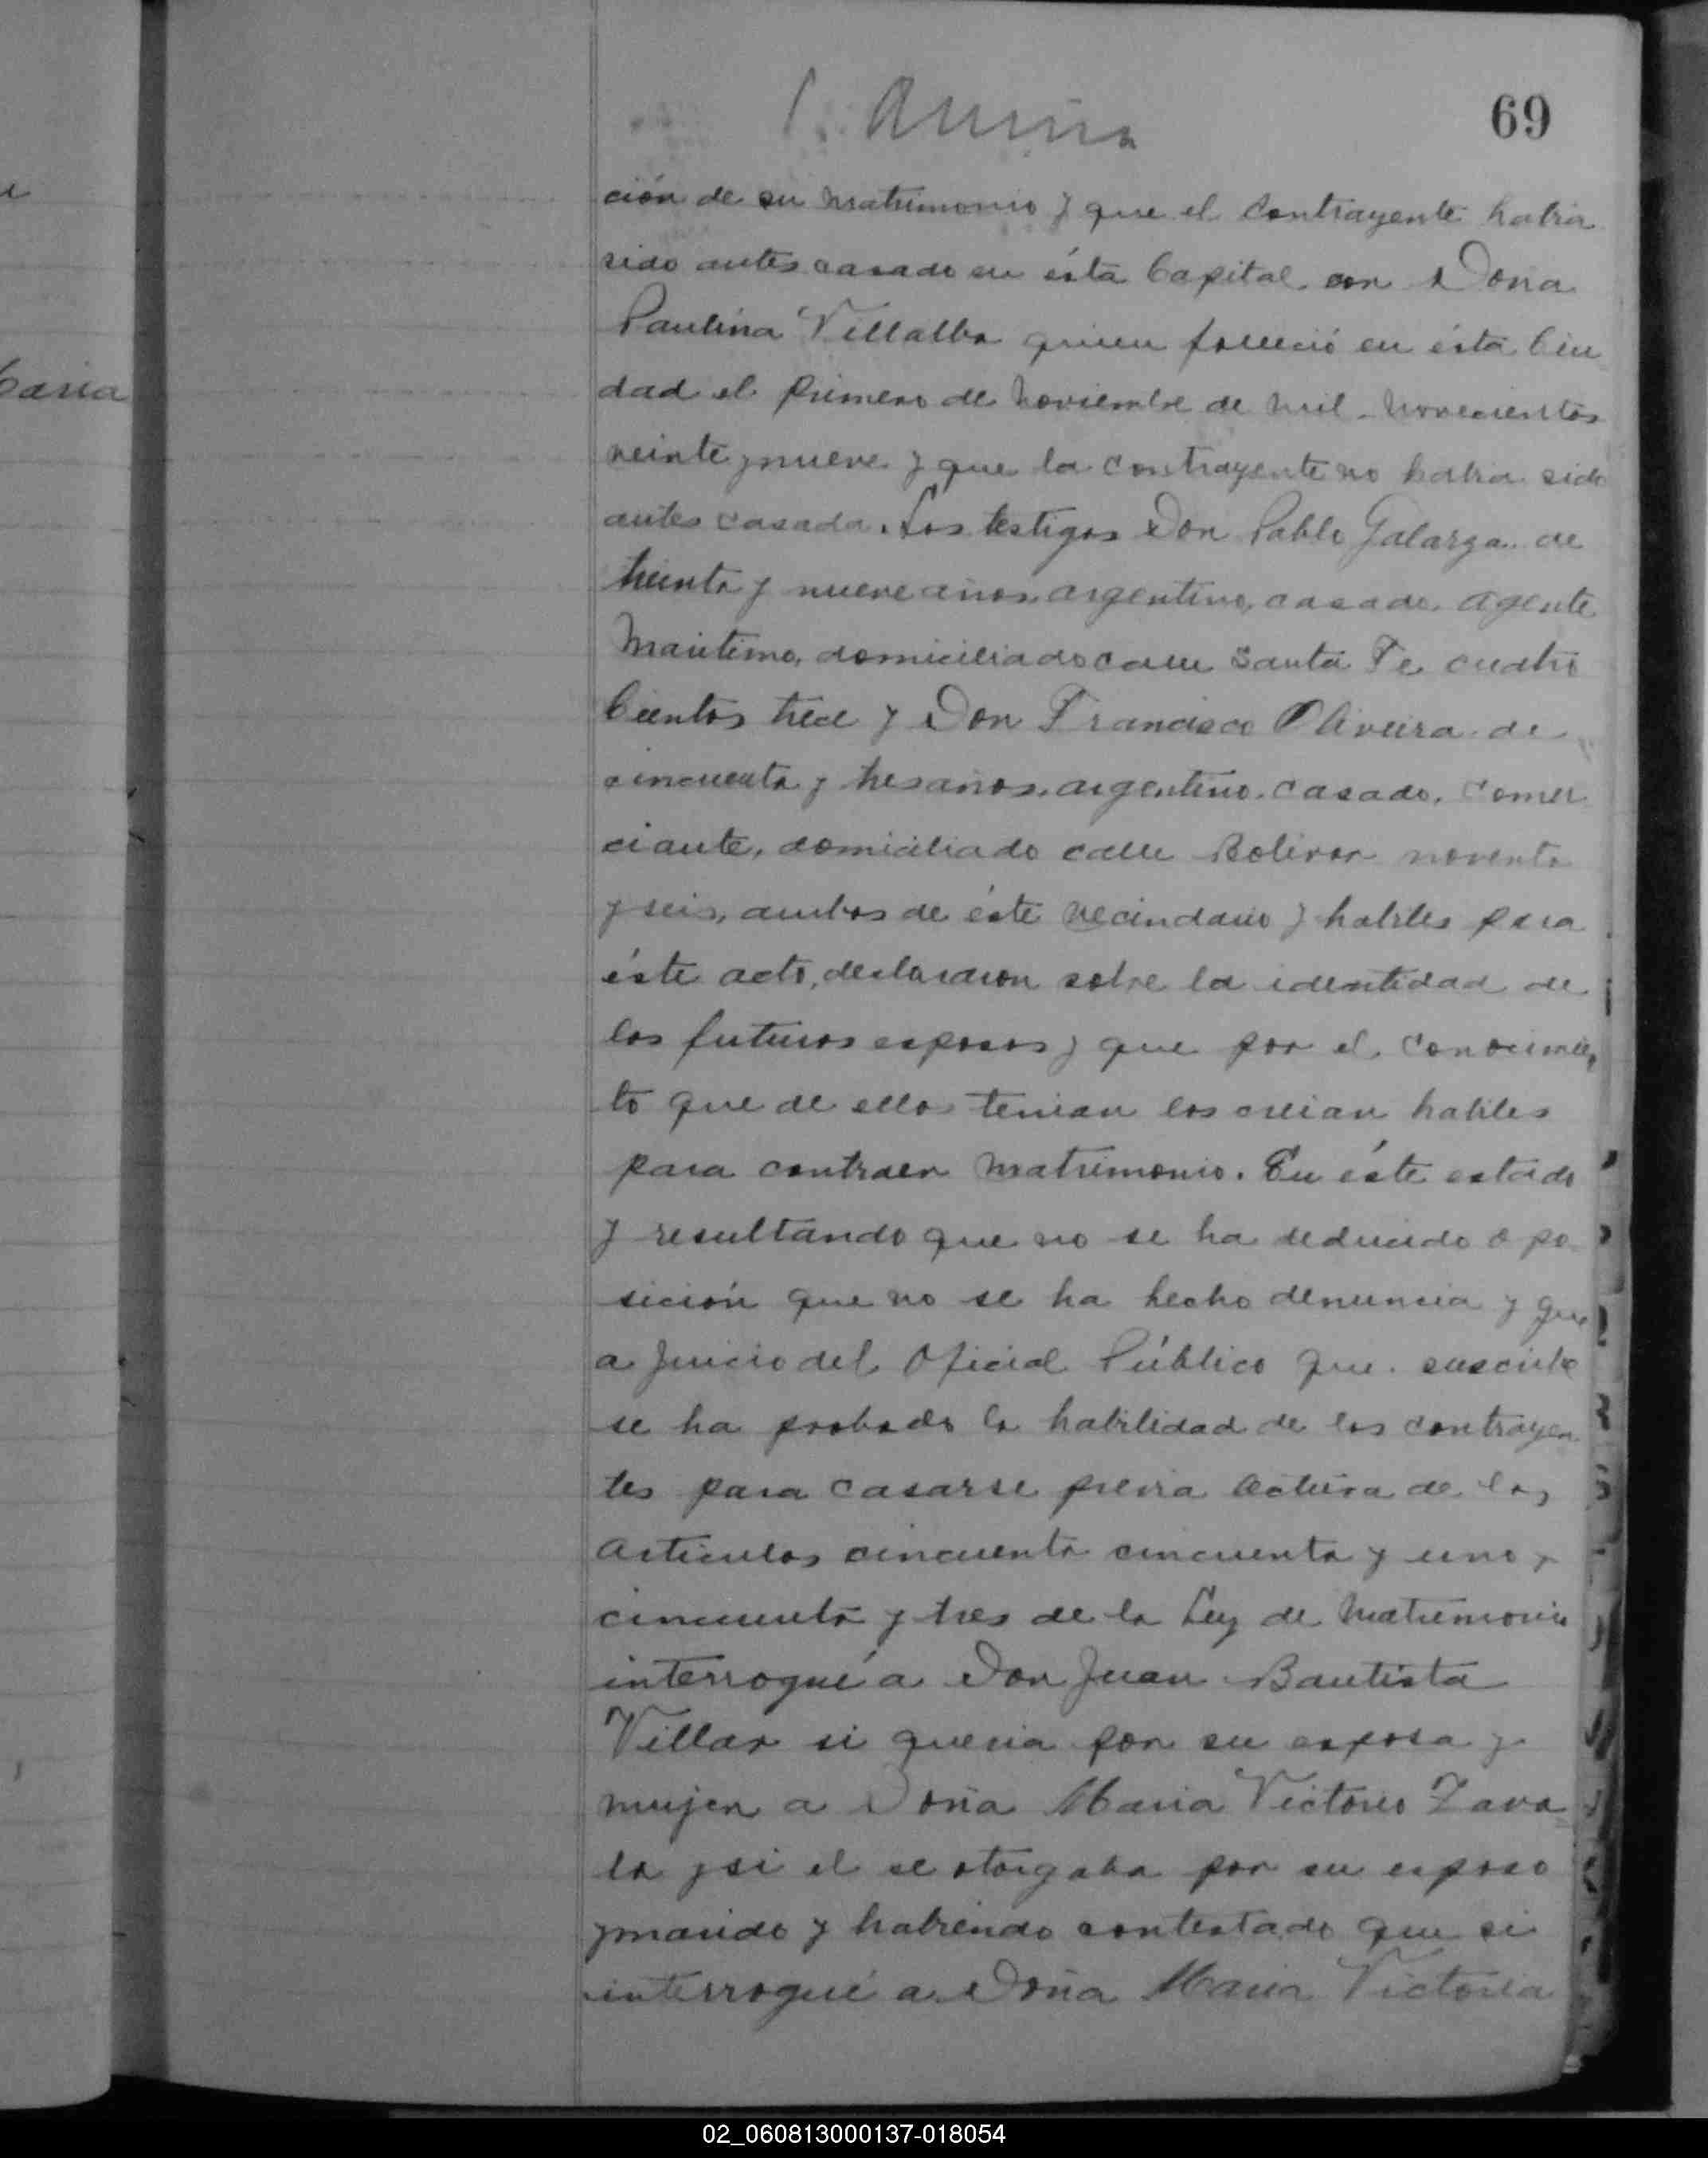 69
ción de su matrimonio y que el contrayente habia
sido antes casado en ésta Capital con Dona
Paulina Villalba quien falleció en ésta Ciu
dad el primero de Noviembre de mil novecientos
veinte y nueve y que la contrayente no habia sido
antes casada. Los testigos Don Pablo Galarza de
treinta y nueve años, argentino, casado, agente
Maritimo, domiciliado calle Santa Fe cuatro
cientos trece y Don Francisco Oliveira de
cincuenta y tres años, argentino, casado, comer
ciante, domiciliado calle Bolivar noventa
y seis, ambos de éste vecindario y habiles para
éste acto, declararon sobre la identidad de
los futuros esposos y que por el conocimien
to que de ellos tenian los creian habiles
para contraer matrimonio. En éste estado
y resultando que no se ha deducido opo
sición que no se ha hecho denuncia y que
a juicio del Oficial Público que suscribe
se ha probado la habilidad de los contrayen
tes para casarse previa lectura de los
articulos cincuenta cincuenta y uno y
cincuenta y tres de la Ley de Matrimonio
interrogué a Don Juan Bautista
Villar si queria por su esposa y
mujer a Doña Maria Victoria Zava
la y si el se otorgaba por su esposo
y marido y habiendo contestado que si
interrogué a Doña Maria Victoria
Caria
02_060813000137-018054